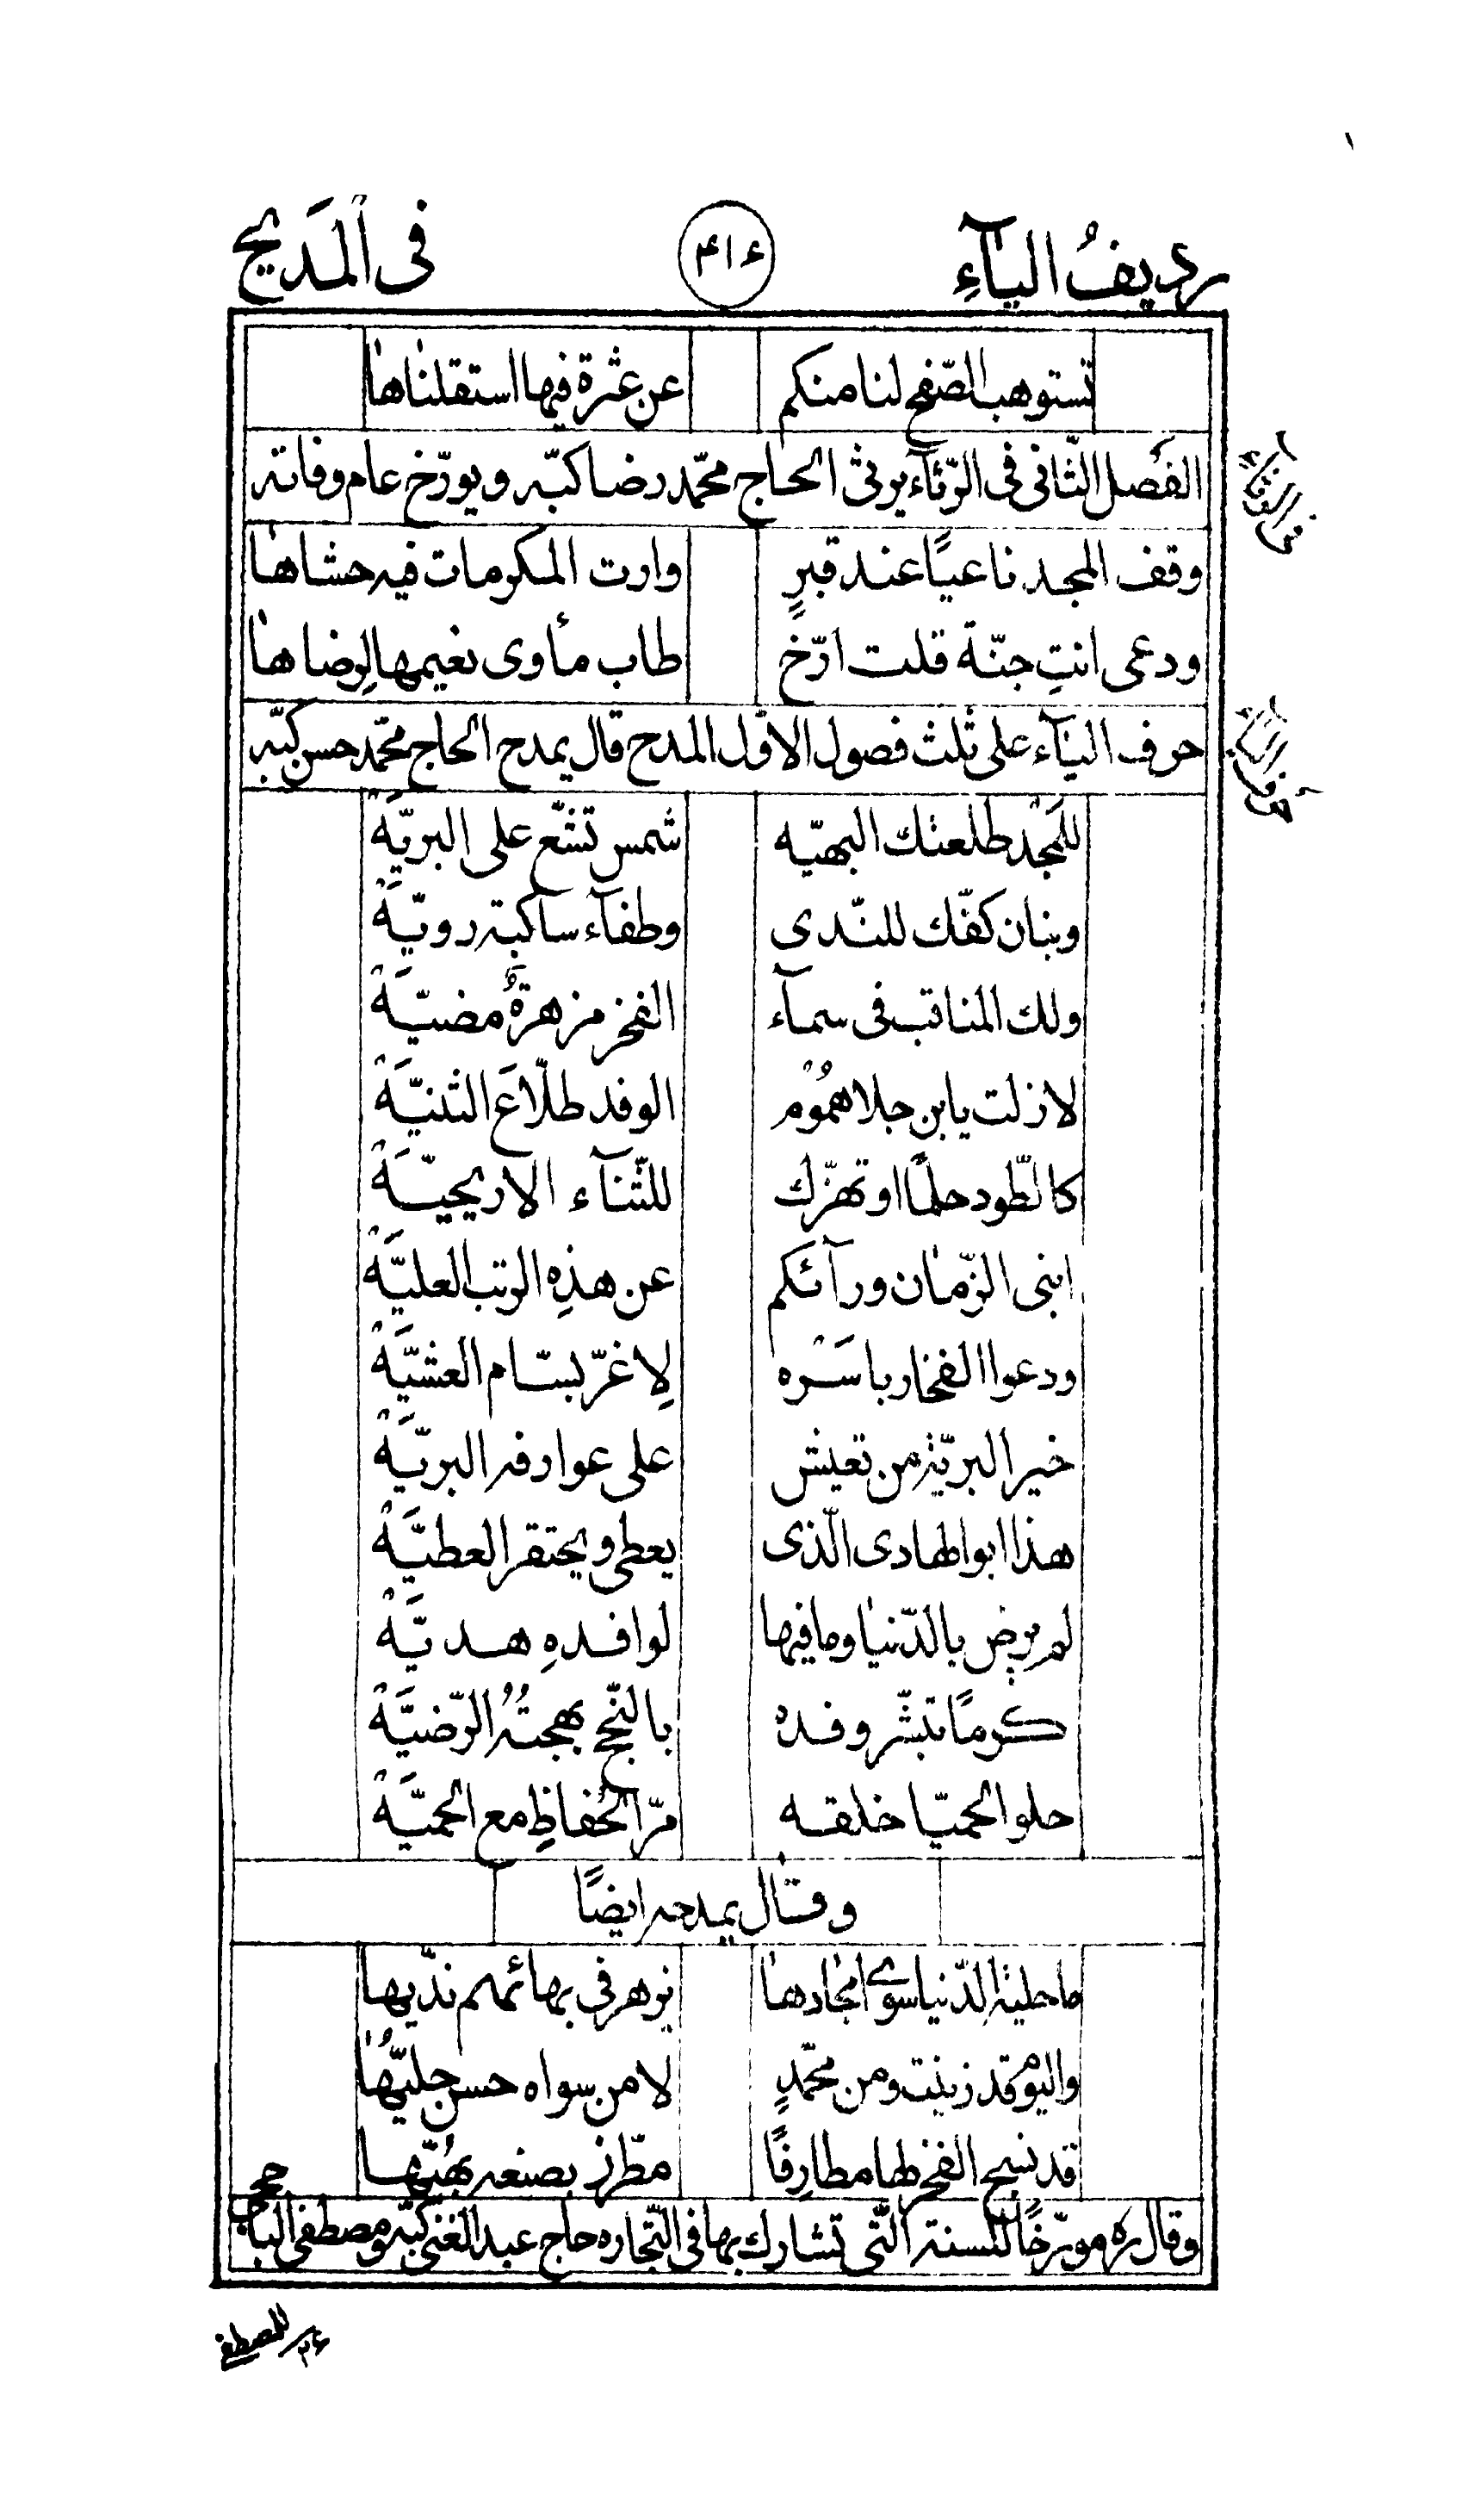 رديفُ اليآءِ ٣١٤ فى المَديح
تستوهب الصّفح لنا منكم عن عثرة فيها استقلناها
الفَصل الثّانى فى الرّثآء يرثى الحاج محمّد رضا كبّه ويورّخ عام وفاته
وقف المجد ناعيًا عند قبرٍ وارت المكرمات فيه حشاها
ودعى انتِ جنّة قلت ارّخ طاب مأوى نعيمها لرضاها
حرف اليآء على ثلث فصول الاوّل المدح قال يمدح الحاج محمّد حسن كبّه
للمَجْد طلعتك البهيّه شمس تشعّ على البريَّهْ
وبنان كفّك للنّدى وطفآء ساكبة رويَّهْ
ولك المناقب فى سمآء الفخر مزهرةٌ مضيَّهْ
لازلت يابن جلا همُوْم الوفد طلّاعَ الثنيَّهْ
كالطّود حلمًا او تهزّك للثّنآء الاريحيَّهْ
ابنى الزّمان ورآئكم عن هذِه الرتب العليَّهْ
ودعوا الفخار باسَرْه لِاغرّ بسّام العشيَّهْ
خير البريّة من تعيش على عوارفه البريَّهْ
هذا ابو الهادى الّذى يعطى ويحتقر العطيَّهْ
لم يرض بالدّنيا وما فيها لوافدهِ هديَّهْ
كرمًا تبشّر وفده بالنّجح بهجتُهُ الرّضيَّهْ
حلو الحميّا خلقه مرّ الحُفاظِ مع الحميَّهْ
وقال يمدحه ايضًا
ما حلية الدّنيا سوى امجادها يزهر فى بهائهم نديّها
واليوم قد زينت ومن محمّدٍ لا من سواه حسن حليّهُا
قد نسج الفخر لها مطارِفًا مطرّز بصنعه بهُيّها
وقال ره مورّخًا للسنة الّتى تشارك بها فى التّجاره حاج عبد الغنى كبّه ومصطفى الباب